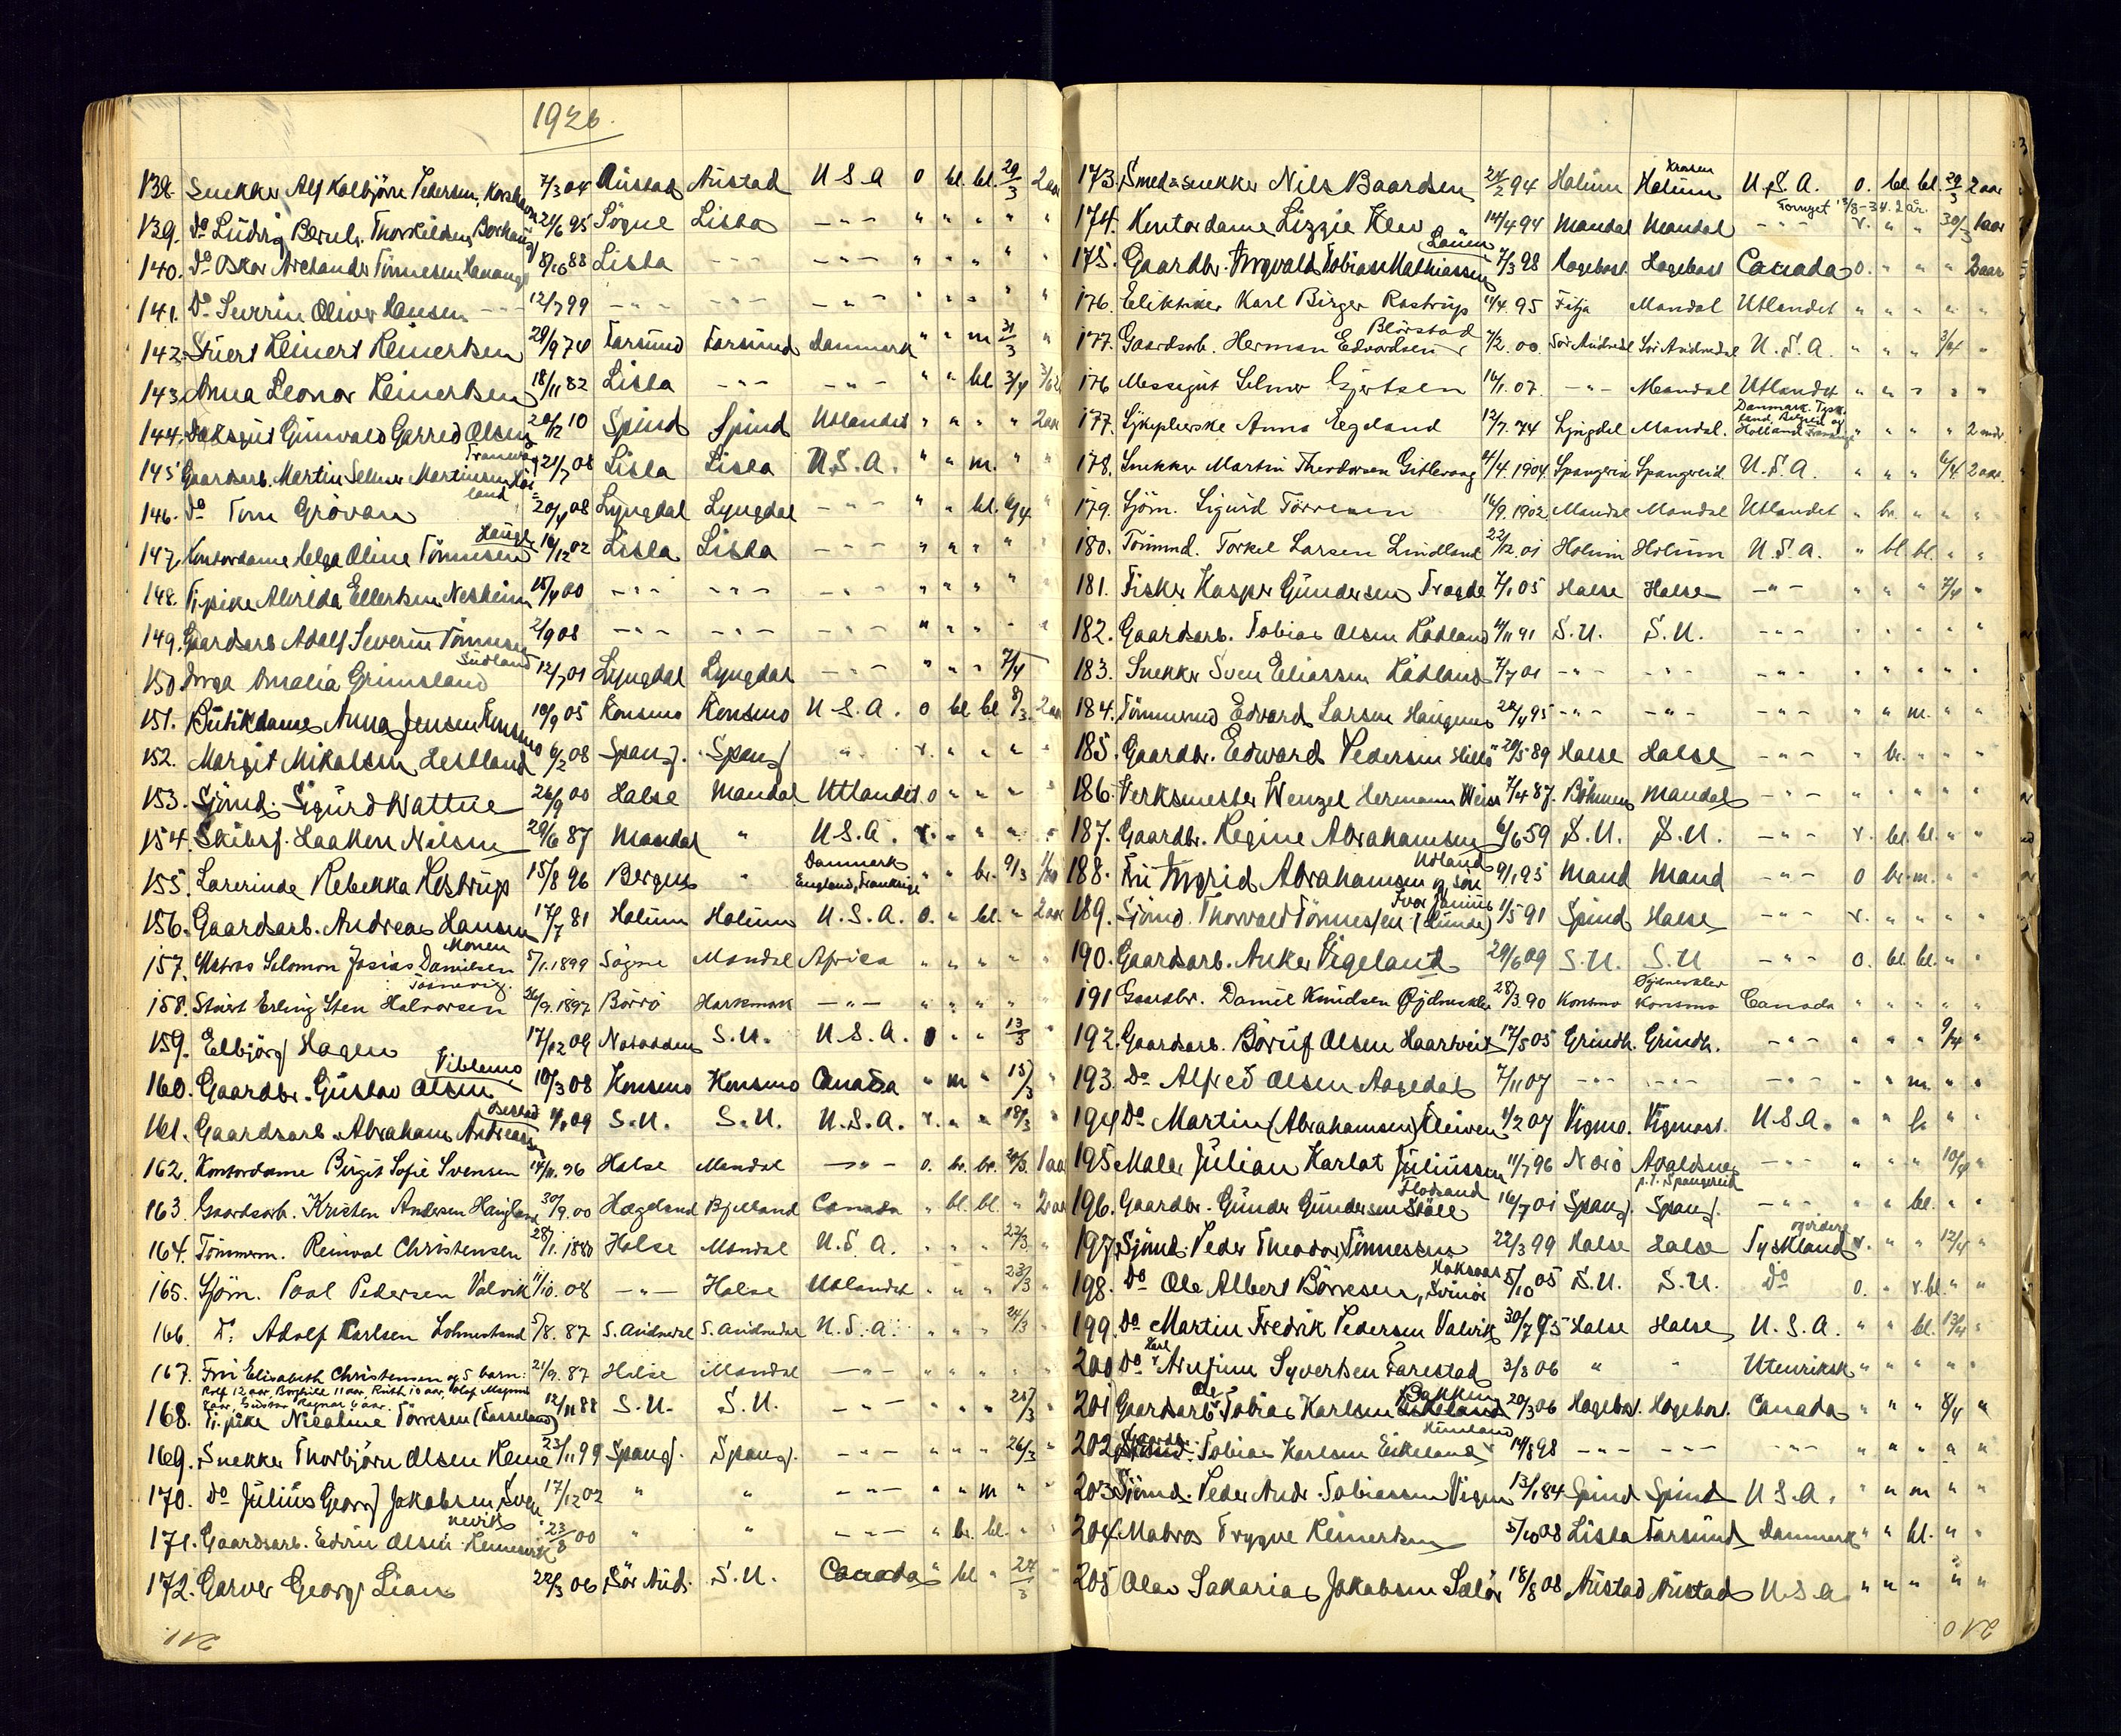 1926.
138. Snekker Alf Kolbjörn Pedersen, Korshavn 7/3 04 Austad Austad U S A o bl. bl. 29/3 2 aar
139. Do Ludvig Bernh. Thorkildsen, Borhaug 24/6 95 Sögne Lista -"- " " " " "
140. Do Oskar Tönnesen 8/10 88 Lista -"- -"- " " " " "
141. Do Severin Oliver Hansen -"- 12/7 99 -"- -"- -"- " " " " "
142. Stuert Reinert Reinertsen 28/9 74 Farsund Farsund Danmark " " m 31/3 "
143. Anna Leonor Reinertsen 18/11 82 Lista -"- -"- " " bl. 3/4
144. Dæksgut Gunvald Garred Olsen 20/12 10 Spind Spind Utlandet " " " " 2 aar
145 Gaardsarb. Martin Selmer Martinsen 21/7 08 Lista Lista U.S.A. " " m. " "
146. Do Tom Grövan 20/4 08 Lyngdal Lyngdal -"- " " bl. 6/4 "
147. Kontordame Helga Oline Tönnesen Hauge 16/12 02 Lista Lista -"- " " " " "
148. Tj.pike Alvilda Ellertsen Nesheim 15/4 00 -"- -"- -"- " " " "
149. Gaardsarb Adolf Severin Tönnesen Sudland 2/9 08 -"- -"- -"- " " " " "
150 Inga Amalia Grimsland 12/7 01 Lyngdal Lyngdal -"- " " " 7/4
151. Butikdame Anna Jensen Konsmo 10/9 05 Konsmo Konsmo U S.A. o bl bl 8/3 2 aar
152. Margit Mikalsen Hestland 6/2 08 Spang. Spang " v. " " " "
153. Sjömd. Sigurd Wattne 26/9 00 Halse Mandal Utlandet o " " " "
154. Skibsf. Haakon Nilsen 29/6 87 Mandal " U.S.A. v. " " " "
155. Lærerinde Rebekka Kostrup 15/8 96 Bergen " Danmark England, Frankrige " " br. 9/3
156. Gaardsarb. Andreas Hansen Monen 17/7 81 Holum Holum U.S.A. o. " bl. " 2 aar
157. Matros Salomon Josias Danielsen 5/1. 1899 Sögne Mandal Africa " " " " "
158. Stuert Erling Sten Halvorsen 26/9. 1897 Börrö Harkmark -"- " " " " "
159. Elbjörg Hagen 17/12 09 Notodden S.U. U.S.A. o " " 13/3 "
160. Gaardbr. Gustav Olsen Viblemo 10/3 08 Konsmo Konsmo Canada " m " 15/3 "
161. Gaardsarb. Abraham Andreasen 09 S.U. S.U. U.S.A. v. " " 18/3 "
162. Kontordame Birgit Sofie Svensen 14/11. 96 Halse Mandal -"- o. br. br. 20/3. 1 aar
163. Gaardsarb. Kristen Andersen Haugland 30/9. 00 Hægeland Bjelland Canada " bl. bl. " 2 aar
164. Tömmerm. Reinval Christensen 28/1. 1880 Halse Mandal U.S.A. " " " 22/3 "
165. Sjöm. Paal Pedersen Valvik 11/10. 08 -"- Halse Utlandet " " " 23/3 "
166. Do Adolf Karlsen 5/8. 87 S. Audnedal S. Audnedal U.S.A. " " " 24/3 "
167. Fru Elisabeth Christensen og 5 barn: 21/9. 87 Halse Mandal -"- " " " " "
Rolf 12 aar, Borghild 11 aar, Ruth 10 aar, Olaf Magnus 8 aar, Gustav Ragnar 6 aar.
168. Tj. pike Nicoline Torresen (Tasseland) 12/11 88 S.U. S.U. -"- " " " 25/3 "
169. Snekker Thorbjörn Olsen Rème 23/11 99 Spang. Spang. -"- " " " 26/3 "
170. Do Julius Georg Jakobsen Svenevik 17/12 02 " " -"- " " m " "
171. Gaardsarb. Edvin Olsen 23/8 00 " " -"- " br. bl. " "
172. Garver Georg Lian 22/3 06 Sör Aud. S.U. Canada " bl " 24/3 "
211
173. Smed & snekker Nils Baardsen 24/2 94 Holum Krosen Holum U.S.A. o. bl. bl. 29/3 2 aar
Fornyet 15/8-34. 2 år.
174. Kontordame Lizzie Klev 14/4 94 Mandal Mandal -"- v. " " 30/3 1 aar
175. Gaardbr. Ingvald Tobias Mathiassen Lauen 7/3 98 Hægebost. Hægebost Canada o. " " " 2 aar
176. Elektriker Karl Birger Rostrup 11/4. 95 Fitja Mandal Utlandet " " " " "
177. Gaardsarb. Herman Edvardsen Blörstad 7/2. 00. Sör Audnedal Sör Audnedal U.S.A. " " " 3/4 "
176 Messegut Selmer Gjertsen 16/1. 07. -"- Mandal Utlandet " " " " "
177. Sykepleierske Anna Egeland 12/7. 74 Lyngdal Mandal. Danmark. Tyskland. Belgien og Holland Frankrige " " " " 2 mdr.
178. Snekker Martin Theodorsen Gitlevaag 4/4. 1904. Spangerei Spangereid U.S.A. " " " 6/4 2 aar.
179. Sjöm. Sigurd Törresen 16/9. 1902. Mandal Mandal Utlandet " br. " " "
180. Tömmd. Torkel Larsen Lindland 22/12. 01 Holum Holum U.S.A. " bl. bl. " "
181. Fisker Kasper Gundersen Tregde 7/1 05 Halse Halse -"- " " " 7/4 "
182. Gaardsarb. Tobias Olsen Rödland 4/11 91 S.U. S.U. -"- " " " " "
183. Snekker Sven Eliassen Rödland 7/7 01 -"- -"- -"- " " " " "
184. Tömmermd Edvard Larsen Haugum 28/4 95 -"- -"- -"- " " m. " "
185. Gaardbr. Edward Pedersen Hille 20/5 89 Halse Halse -"- " br. " " "
186. Verksmester Wenzel Hermann Weiss 7/4 87. Böhmen Mandal -"- " " " " "
187. Gaardbr. Regine Abrahamsen Udland 6/6 59 S.U. S.U. -"- v. bl. bl. " "
188. Fru Ingrid Abrahamsen og sön Ivar Janius 9/1 95 Mand Mand -"- o br. m. " "
189. Sjömd. Thorvald Tönnessen (Lunde) 1/5 91 Spind Halse -"- v. " " " "
190. Gaardsarb. Anker Vigeland 29/6 09 S.U. S.U -"- o. bl. bl. " "
191 Gaardbr. Daniel Knudsen 28/3. 90 Konsmo Konsmo Canada " " " " "
192. Gaardsarb. Börüf Olsen Haartveit 17/5 05 Grindh. Grindh. -"- " " " 9/4 "
193. Do Alfred Olsen Aagedal 7/11 07 -"- -"- -"- " " m. " "
194 Do Martin (Abrahamsen) Kleiven 4/2 07 Vigmo. Vigmost. U.S.A. " " " "
195 Maler Julian Karlot Juliussen 11/7 96 Nörö Avaldsnes p.t. Spangereid -"- " " " 10/4 "
196. Gaardbr. Gunder Gundersen Stöle Flodsand 16/7 01 Spang. Spang. -"- " " bl. " "
197. Sjömd. Peder Theodor Tönnessen 22/3 99 Halse Halse Tyskland v. " " 12/4 "
198. Do Ole Albert Börresen, Svinör 5/10 05 S.U. S.U. Do o. " v.bl. " "
199. Do Martin Fredrik Pedersen Valvik 30/7 75 Halse Halse U.S.A. " " bl. 13/4 "
200 Do Karl Arnfinn Syvertsen Farestad 3/3 06 " " Utenriksk " " " " "
201 Gaardsarb. Ole Tobias Karlsen Bakken Eikeland 20/3 06 Hægebost. Hægebost. Canada " " " 8/4 "
202 Gaardbr. Tobias Karlsen Eikeland 14/8 98 -"- -"- -"- " " " " "
203 Sjömd. Peder Andr. Tobiassen Vigen 13/1 84 Spind Spind U S.A. " " m " "
204 Matros Trygve Reinertsen 5/10 08 Lista Farsund Danmark " " bl. " "
205 Olav Sakarias Jakobsen Salör 18/8 08 Austad Austad U.S.A " " " " "
210